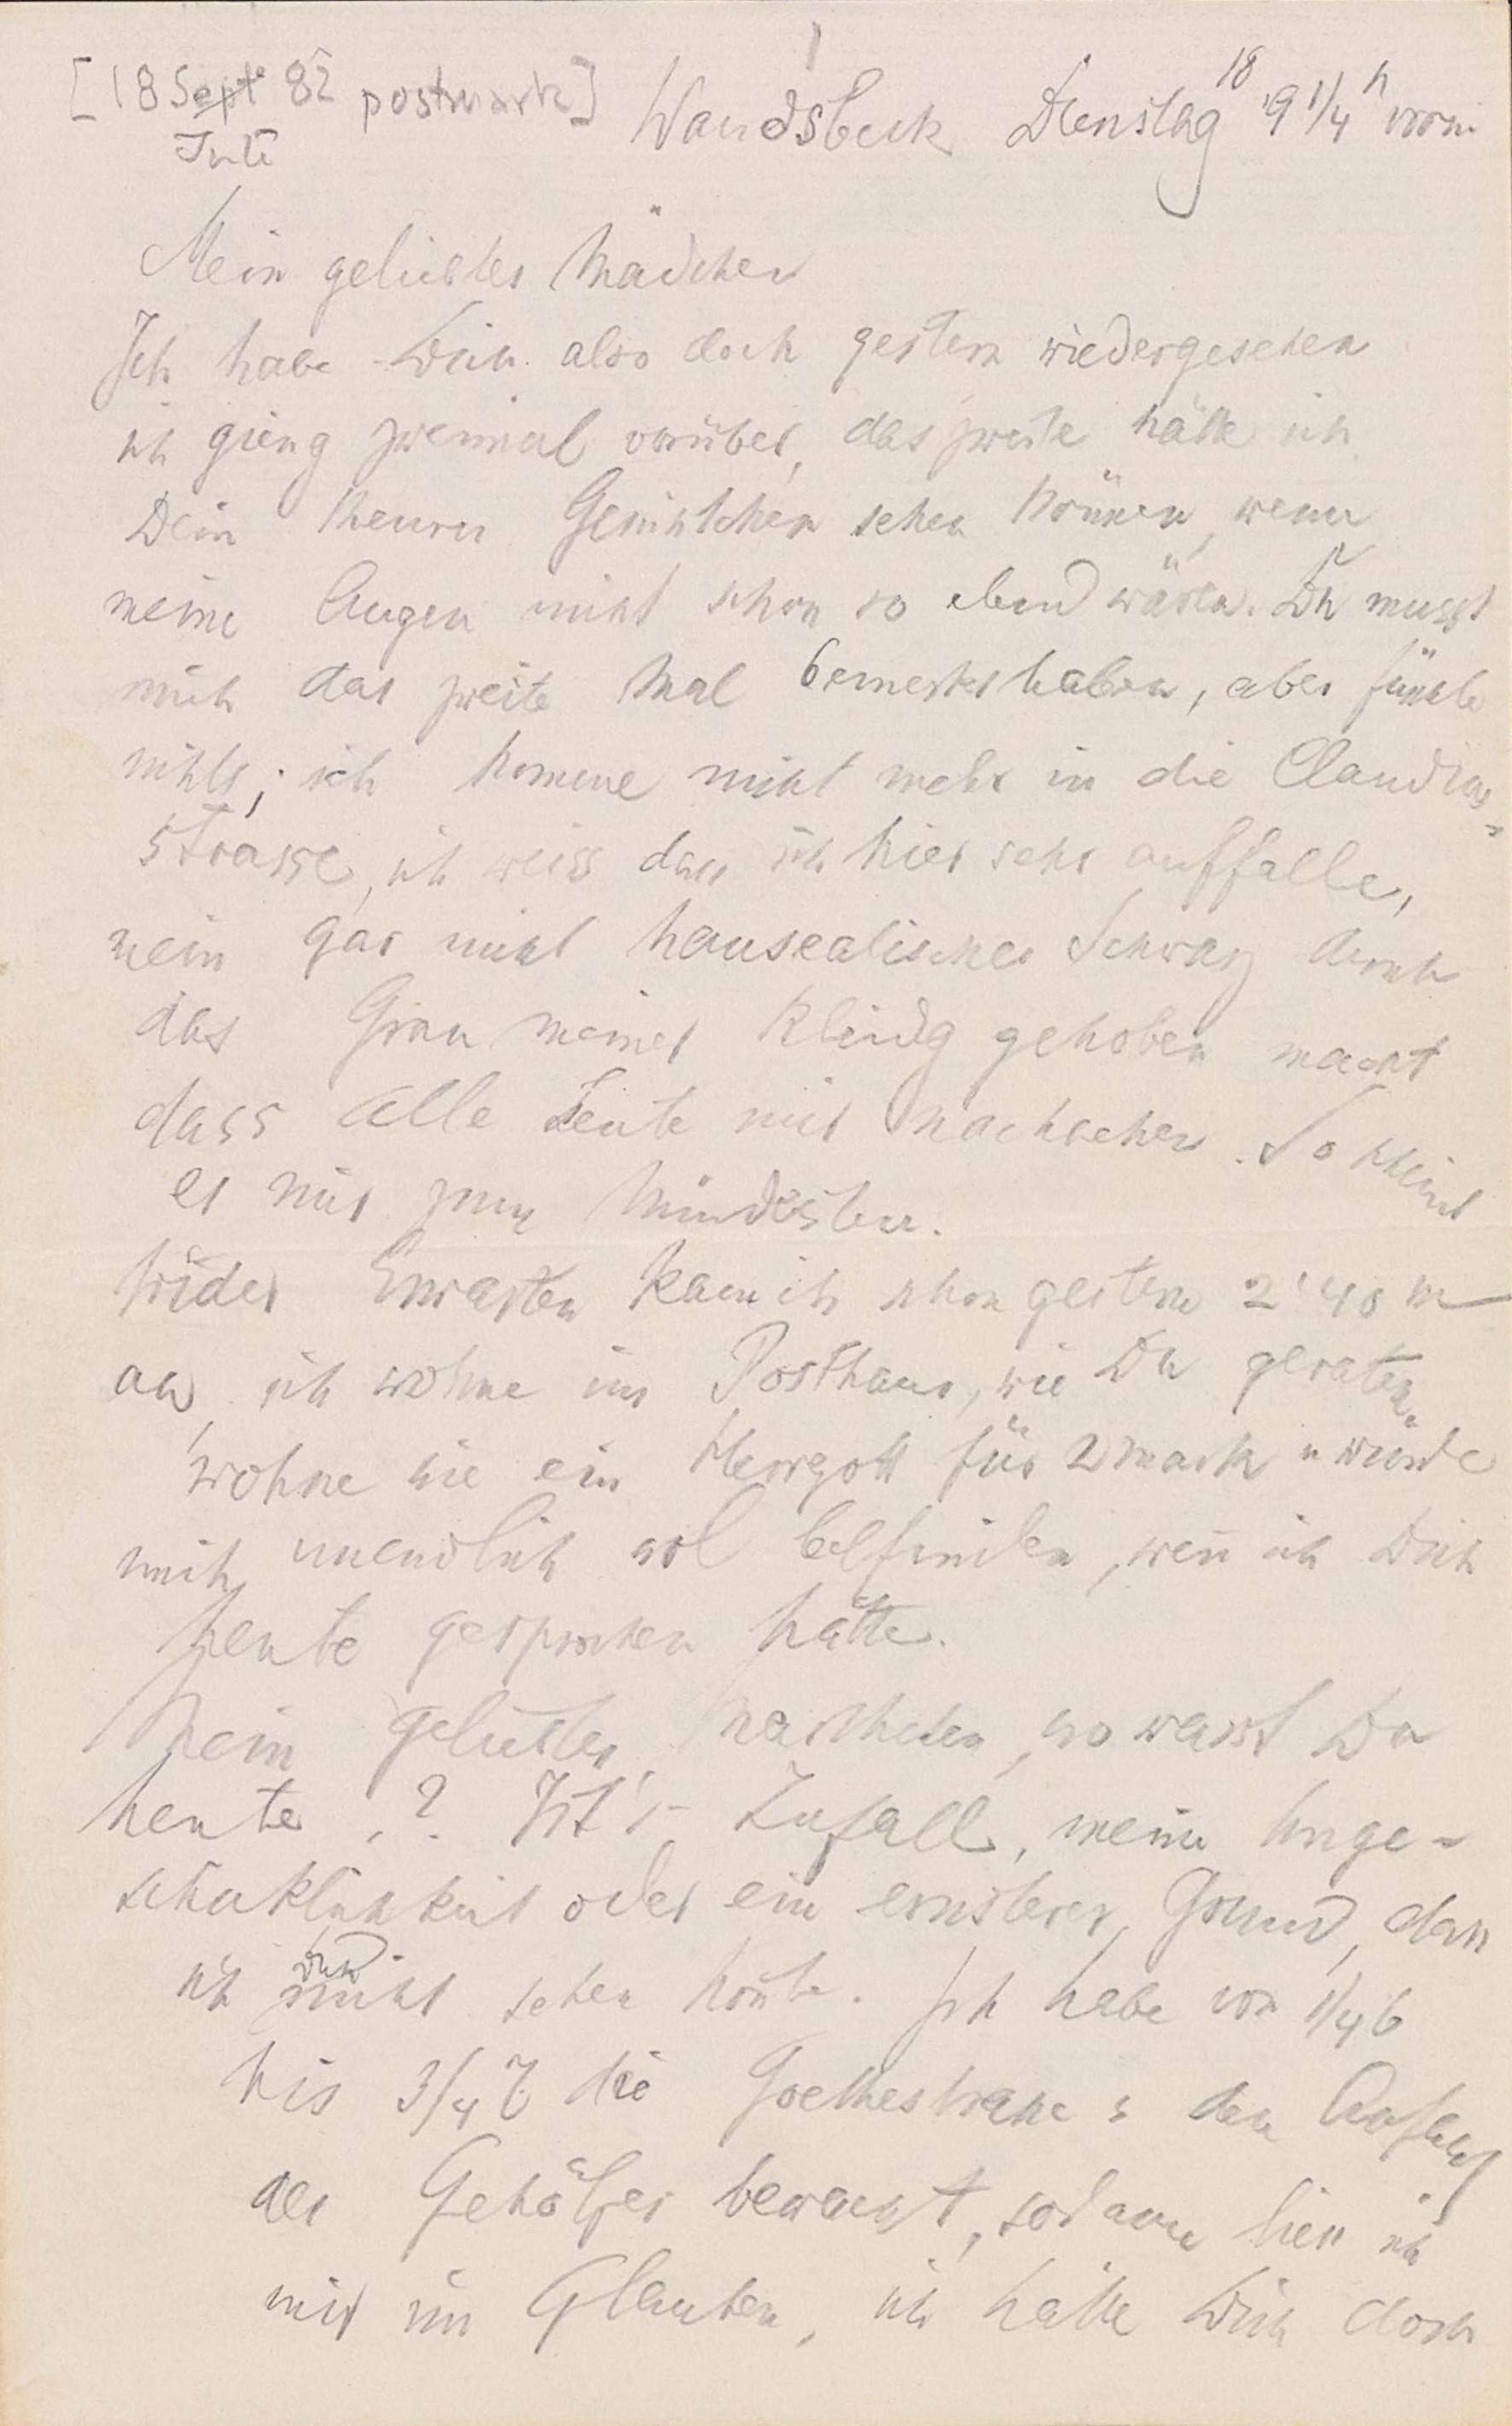 [18 Sept 82 postmark]
Juli
Wandsbeck Dienstag 18 9 1/4 h vorm
Mein geliebtes Mädchen
Ich habe Dich also doch gestern wiedergesehen
ich gieng zweimal vorüber, das zweite hätte ich
Dein theures Gesichtchen sehen können, wenn
meine Augen nicht schon so elend wären. Du musst
mich das zweite Mal bemerkt haben, aber fürchte
nichts; ich komme nicht mehr in die Claudius-
strasse, ich weiss dass ich hier sehr auffalle,
mein gar nicht hanseatisches Schwarz durch
das Grau meines Kleidg gehoben macht
dass alle Leute mir nachsehen. So scheint
es mir zum Mindesten.
Wider Erwarten kam ich schon gestern 2'40 m
an, ich wohne im Posthaus, wie Du geraten.
wohne wie ein Herrgott für 2 mark u würde
mich unendlich wol befinden, wen̄ ich Dich
heute gesprochen hätte.
Mein geliebtes Marthchen, wo warst Du
heute? Ist's Zufall, meine Unge-
schicklichkeit oder ein ernsterer Grund, dass
ich Dich nicht sehen kon̄te. Ich habe von 1/4 6
bis 3/4 7 die Goethestrasse & den
des Gehölzes bewacht, sodann liess ich
mir im Glauben, ich hätte Dich doch